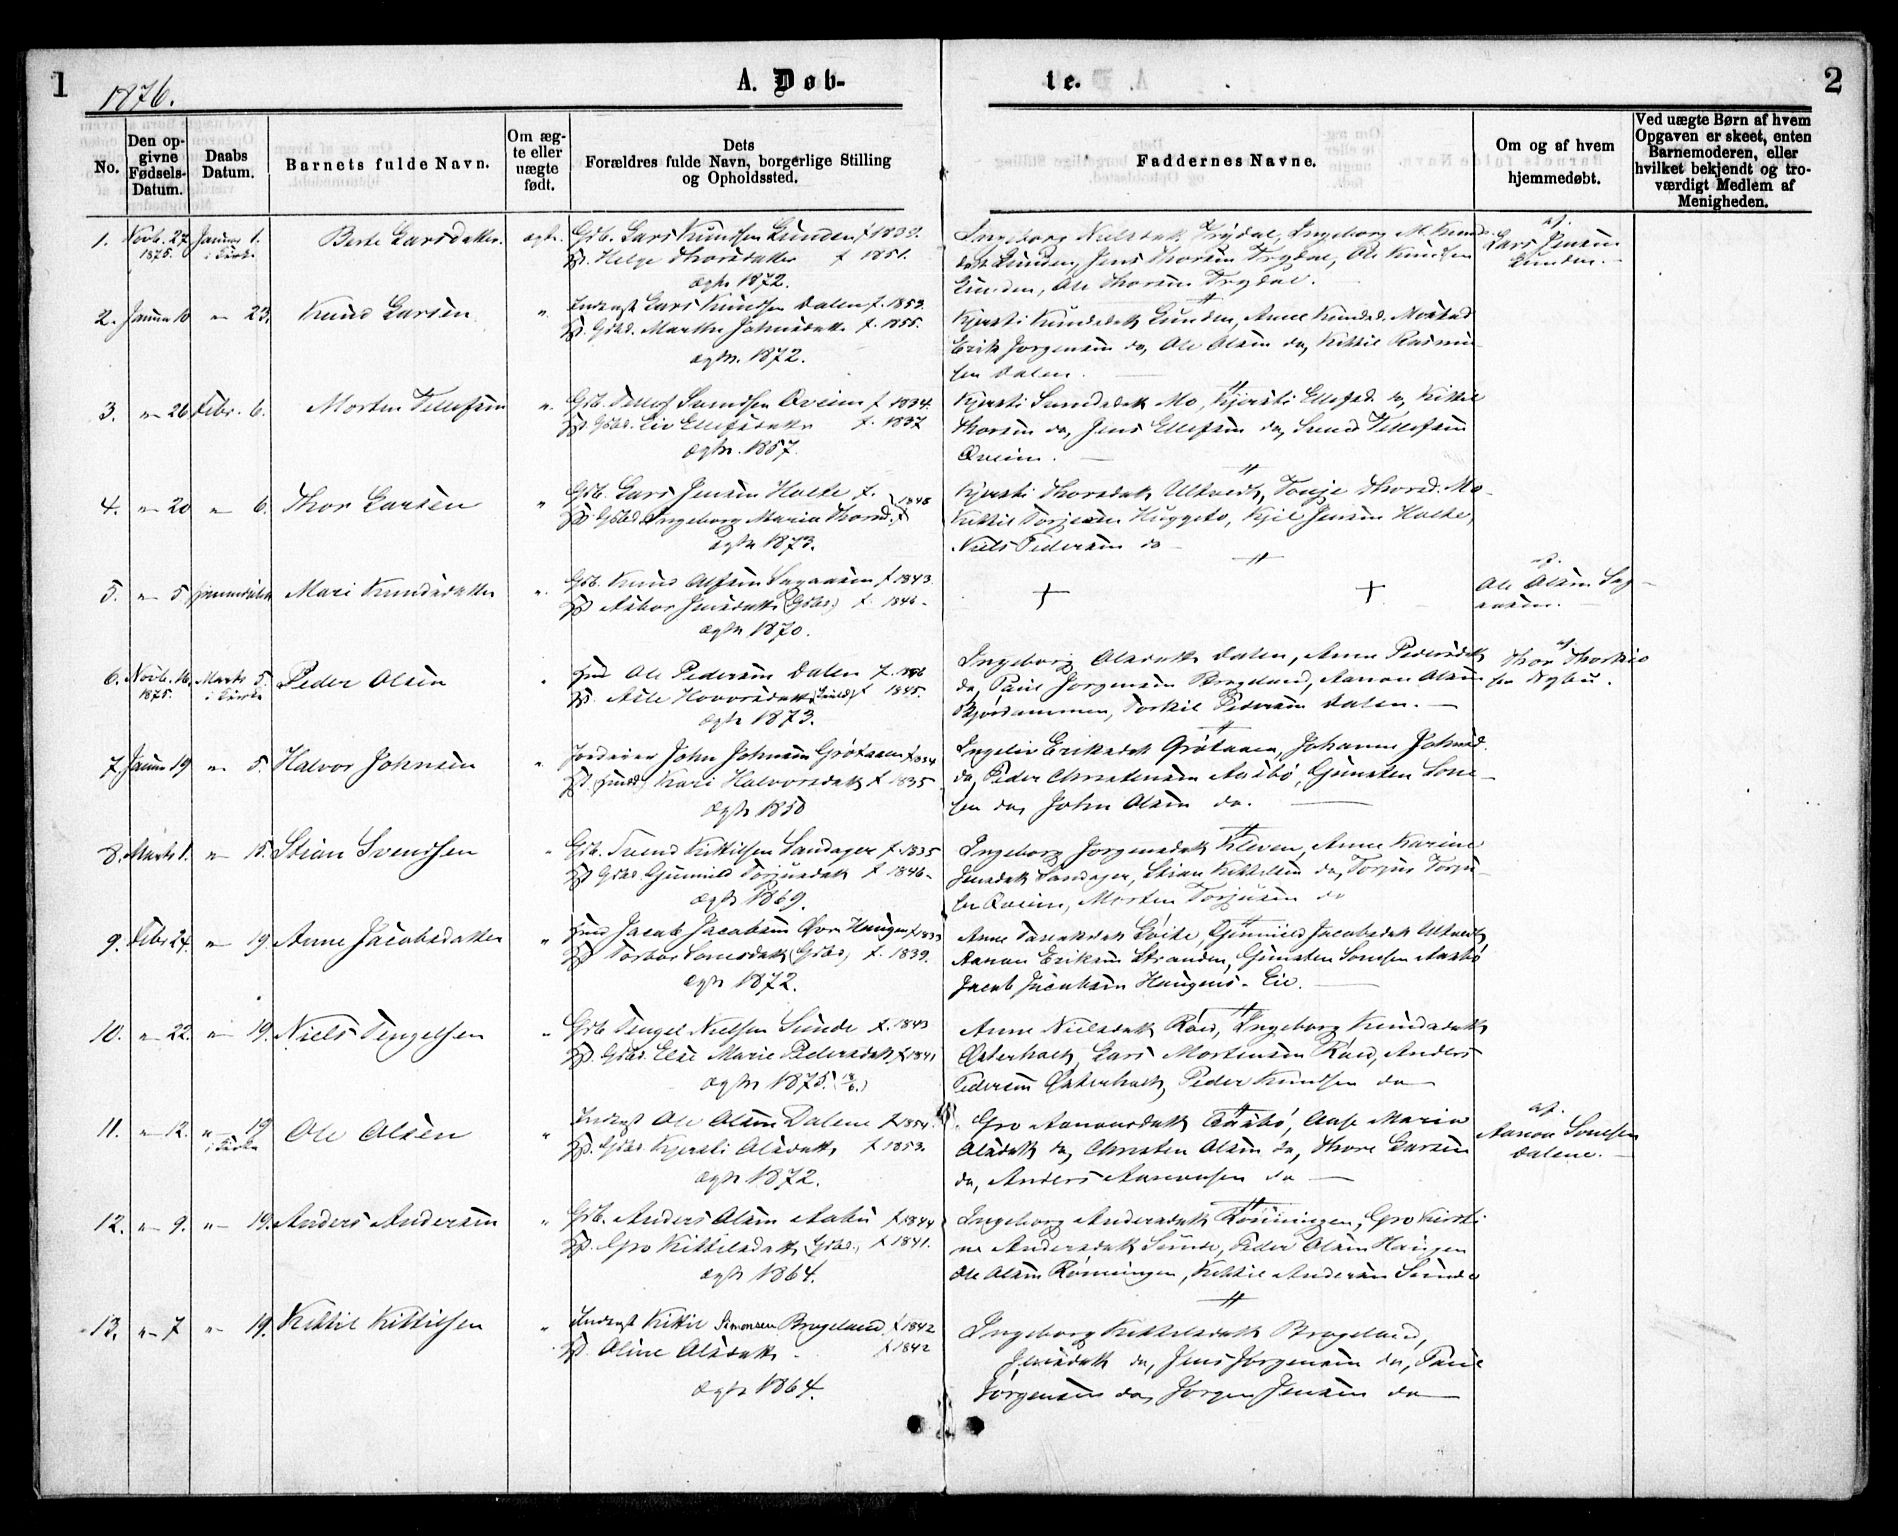 1
1876.
A. Døb-
te.
2
No.
Den op-
givne
Fødsels-
Datum.
Daabs
Datum.
Barnets fulde Navn.
Om æg-
te eller
uægte
født.
Dets
Forældres fulde Navn, borgerlige Stilling
og Opholdssted.
Faddernes Navne.
Om og af hvem
hjemmedøbt.
Ved uægte Børn af hvem
Opgaven er skeet, enten
Barnemoderen, eller
hvilket bekjendt og tro-
værdigt Medlem af
Menigheden.
1. Novb. 27 Januar 1. Berte Larsdatter. ægte. Gdb. Lars Knudsen Lunden f
1875. i Kirke Helge Thorsdatter f 1851.
ægtv. 1872.
Ingeborg Nielsdatt Trydal, Ingeborg M. Knuds-
datt Lunden, Jens Thorsen Trydal, Ole Knudsen
Lunden, Ole Thorsen Trydal.
af.
Lars Jensen
Lunden.
2. Januar 10 " 23. Knud Larsen " Inderst Lars Knudsen Dalen f. 1853.
Gdbd. Marthe Johnsdatt f. 1855.
ægtv. 1872.
Kjersti Knudsdatt Lunden, Anne Knudsd. Mostad
Erik Jørgensen do, Ole Olsen do, Kittil Rasmu-
sen Dalen.
3. " 26 Febr. 6. Morten Tellefsen " Gdb. Tellef Svendsen Øveim f 1834.
Gdbd. Liv Ellefsdatt f. 1837
ægtv. 1857.
Kjersti Svendsdatt Mo, Kjersti Ellefsd. do, Kittil
Thorsen do, Jens Ellefsen do, Svend Tellefsen
Øveim.
4. " 20 " 6. Thor Larsen " Gdb. Lars Jensen Holte f. 1848
Gdbd. Ingeborg Maria Thorsd. f
ægtv 1873.
Kjersti Thorsdatt Ultvedt, Tonje Thorsd. Mo
Kittil Torjesen Huggeto, Kjel Jensen Holte,
Niels Pedersen do
5. " 5 hjemmedøbt Mari Knudsdatter " Gdb. Knud Olsen f 1843.
Aasbor Jensdatt (Gdbd.) f. 1846
ægtv 1870.
+ +
af.
Ole Olsen
6. Novb. 16. Marts 5. Peder Olsen " Ole Pedersen Dalen f.
1875. i Kirke Asle Hovorsdatt f 1845.
ægtv 1873.
Ingeborg Olsdatt Dalen, Anne Pedersdatt
do, Paul Jørgensen Brageland, Aanon Olsen
Torkil Pedersen Dalen.
af
Thor Thorkild-
sen Nybu.
7. Januar 19 " 5. Halvor Johnsen " Jordeier John Johnsen Grøtaaen f 1834
Kari Halvorsdatt f 1835
ægtv 1858
Ingeliv Eriksdatt Grøtaaen, Johanne Johnsd.
do, Peder Christensen Aasbø, Gunsten Sone-
sen do, John Olsen do.
8. Marts 1. " 15. Stian Svendsen " Gdb. Svend Kittilsen Sandager f 1835
Gdbd. Gunnild Torjusdatt f 1846
ægtv 1869.
Ingeborg Jørgensdatt Kleven, Anne Karine
Jensdatt Sandager, Stian Kittilsen do, Torjus Torju-
sen Øveim, Morten Torjusen do
9. Febr 24. " 19. Anne Jacobsdatter " Jacob Jacobsen Haugen f 1833
Torbor Sonesdatt (Gdbd) f. 1839.
ægtv 1872.
Anne Gunnild Jacobsdatt Ultvedt,
Aanon Eriksen Stranden, Gunsten Sonesen Aasbø
Jacob Jacobsen Haugens-Eie.
10. " 22. " 19. Niels Tengelsen " Gdb Tengel Nielsen Sunde f. 1843
Gdbd. Else Marie Pedersdatt f 1841
ægtv 1875.
Anne Nielsdatt Røed, Ingeborg Knudsdatt
Østerholt, Lars Mortensen Røed, Anders
Pedersen Østerholt, Peder Knudsen do
11. " 12. " 19 Ole Olsen " Inderst Ole Olsen Dalene f 1854.
i Kirke Gdbd Kjersti Olsdatt f 1853.
ægtv 1872.
Gro Aanonsdatt Aasbø, Aase Maria
Olsdatt do, Christen Olsen do, Thore Larsen
do, Anders Aanonsen do
af.
Aanon Sonesen
Dalene.
12. " 9. " 19. Anders Andersen " Gdb. Anders Olsen f 1844
Gro Kittilsdatt (Gdbd.) f 1841.
ægtv 1864.
Ingeborg Andersdatt Rønningen, Gro Kirsti-
ne Andersdatt Sunde, Peder Olsen Haugen
Ole Olsen Rønningen, Kittil Andersen Sunde
13. " 7 " 19. Kittil Kittilsen " Inderst Kittil Simonsen Brageland f 1842
Oline Olsdatt f 1842
ægtv 1864.
Ingeborg Kittelsdatt Brageland,
Jensdatt do, Jens Jørgensen do, Paul
Jørgensen do, Jørgen Jensen do